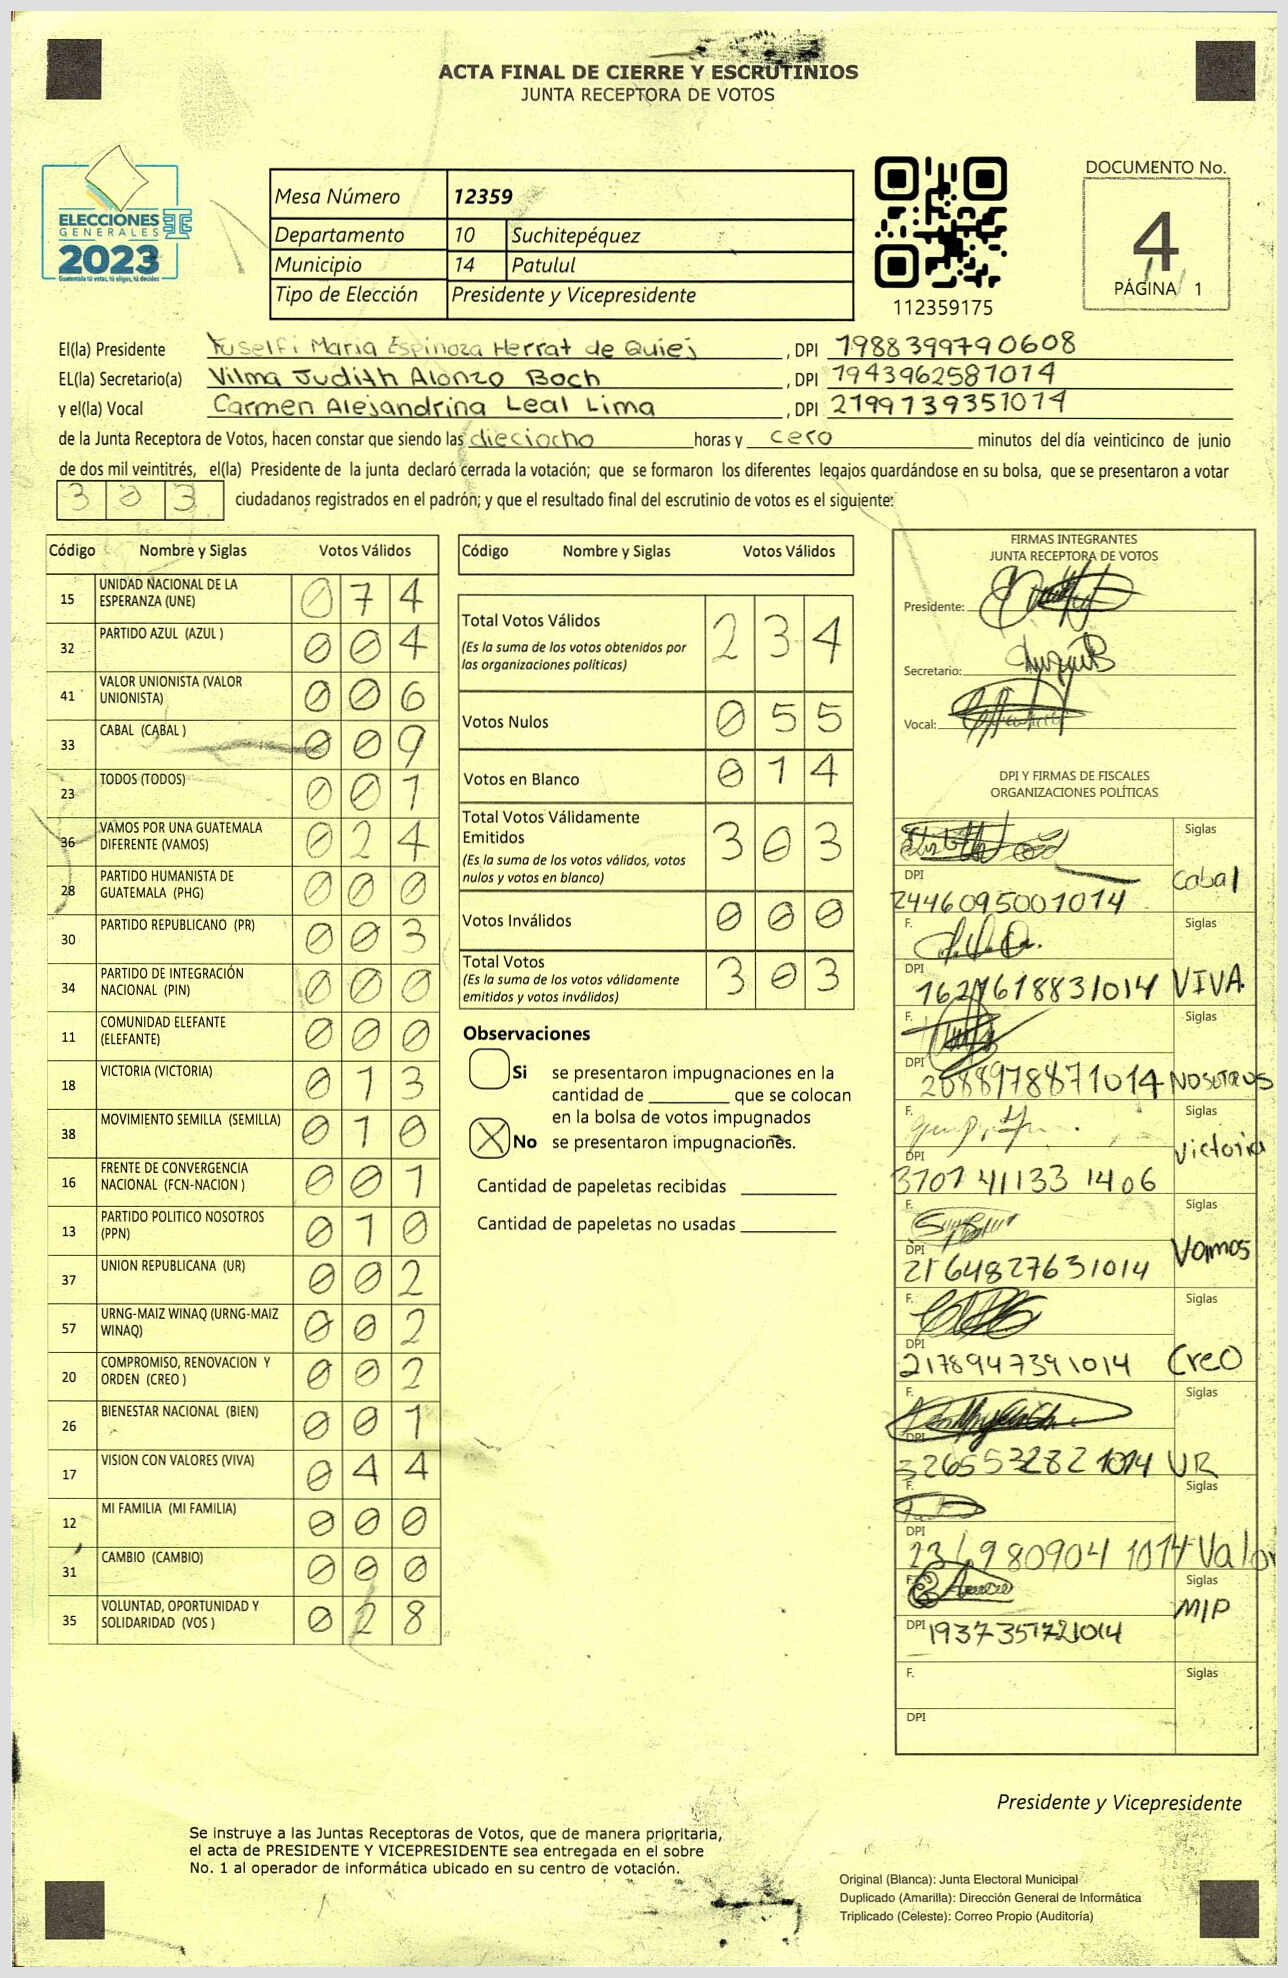 ACTA FINAL DE CIERRE Y ESCRUTINIOS
JUNTA RECEPTORA DE VOTOS
ELECCIONES
GENERALES
2023
Guatemala tú votas, tú eliges, tú decides
Mesa Número 12359
Departamento 10 Suchitepéquez
Municipio 14 Patulul
Tipo de Elección Presidente y Vicepresidente
112359175
DOCUMENTO No.
4
PÁGINA 1
El(la) Presidente Yuselfi Maria Espinoza Herrat de Quiej , DPI 1988399790608
EL(la) Secretario(a) Vilma Judith Alonzo Boch , DPI 1943962581014
y el(la) Vocal Carmen Alejandrina Leal Lima , DPI 2199739351014
de la Junta Receptora de Votos, hacen constar que siendo las dieciocho horas y cero minutos del día veinticinco de junio
de dos mil veintitrés, el(la) Presidente de la junta declaró cerrada la votación; que se formaron los diferentes legajos guardándose en su bolsa, que se presentaron a votar
303 ciudadanos registrados en el padrón; y que el resultado final del escrutinio de votos es el siguiente:
Código Nombre y Siglas Votos Válidos
15 UNIDAD NACIONAL DE LA ESPERANZA (UNE) 074
32 PARTIDO AZUL (AZUL ) 004
41 VALOR UNIONISTA (VALOR UNIONISTA) 006
33 CABAL (CABAL ) 009
23 TODOS (TODOS) 001
36 VAMOS POR UNA GUATEMALA DIFERENTE (VAMOS) 024
28 PARTIDO HUMANISTA DE GUATEMALA (PHG) 000
30 PARTIDO REPUBLICANO (PR) 003
34 PARTIDO DE INTEGRACIÓN NACIONAL (PIN) 000
11 COMUNIDAD ELEFANTE (ELEFANTE) 000
18 VICTORIA (VICTORIA) 013
38 MOVIMIENTO SEMILLA (SEMILLA) 010
16 FRENTE DE CONVERGENCIA NACIONAL (FCN-NACION ) 001
13 PARTIDO POLITICO NOSOTROS (PPN) 010
37 UNION REPUBLICANA (UR) 002
57 URNG-MAIZ WINAQ (URNG-MAIZ WINAQ) 002
20 COMPROMISO, RENOVACION Y ORDEN (CREO ) 002
26 BIENESTAR NACIONAL (BIEN) 001
17 VISION CON VALORES (VIVA) 044
12 MI FAMILIA (MI FAMILIA) 000
31 CAMBIO (CAMBIO) 000
35 VOLUNTAD, OPORTUNIDAD Y SOLIDARIDAD (VOS ) 028
Código Nombre y Siglas Votos Válidos
Total Votos Válidos 234
(Es la suma de los votos obtenidos por
las organizaciones políticas)
Votos Nulos 055
Votos en Blanco 014
Total Votos Válidamente
Emitidos 303
(Es la suma de los votos válidos, votos
nulos y votos en blanco)
Votos Inválidos 000
Total Votos 303
(Es la suma de los votos válidamente
emitidos y votos inválidos)
Observaciones
Si se presentaron impugnaciones en la
cantidad de ________ que se colocan
en la bolsa de votos impugnados
X No se presentaron impugnaciones.
Cantidad de papeletas recibidas
Cantidad de papeletas no usadas
FIRMAS INTEGRANTES
JUNTA RECEPTORA DE VOTOS
Presidente:
Secretario:
Vocal:
DPI Y FIRMAS DE FISCALES
ORGANIZACIONES POLÍTICAS
Siglas
DPI Cabal
2446095001014
F. Siglas
DPI
1621618831014 VIVA
F. Siglas
DPI
2088978871014 NOSOTROS
F. Siglas
DPI Victoria
3707 41133 1406
F. Siglas
DPI Vamos
2164827631014
F. Siglas
DPI
2178947391014 Creo
F. Siglas
DPI
3265532821014 UR
F. Siglas
DPI
Valor
F. Siglas
MIP
DPI 1937357721014
F. Siglas
DPI
Presidente y Vicepresidente
Se instruye a las Juntas Receptoras de Votos, que de manera prioritaria,
el acta de PRESIDENTE Y VICEPRESIDENTE sea entregada en el sobre
No. 1 al operador de informática ubicado en su centro de votación.
Original (Blanca): Junta Electoral Municipal
Duplicado (Amarilla): Dirección General de Informática
Triplicado (Celeste): Correo Propio (Auditoría)